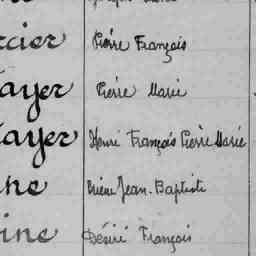 rcier Pierre François
ayer Pierre Marie
ayer Henri François Pierre Marie
ne Jean-Baptiste
ine Désiré François